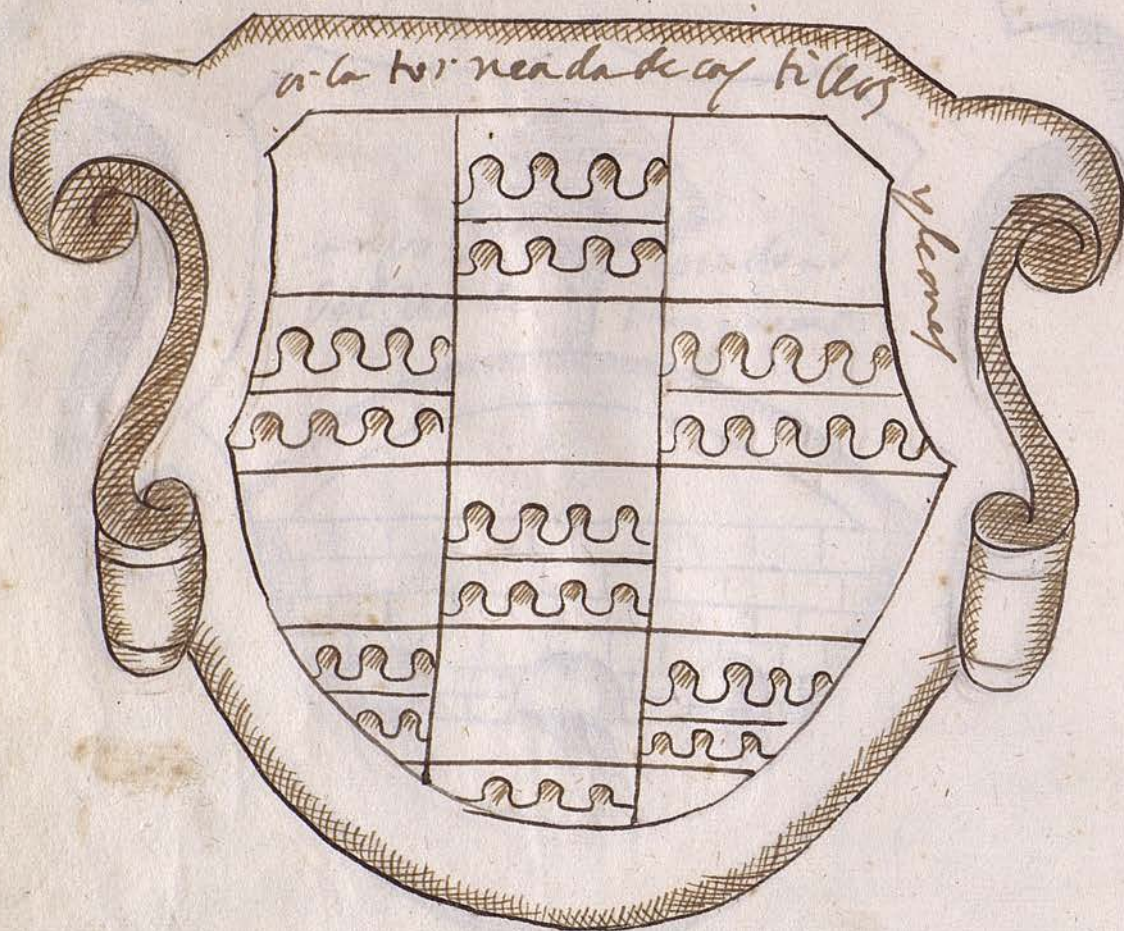 orla torneada de castillos
y leones